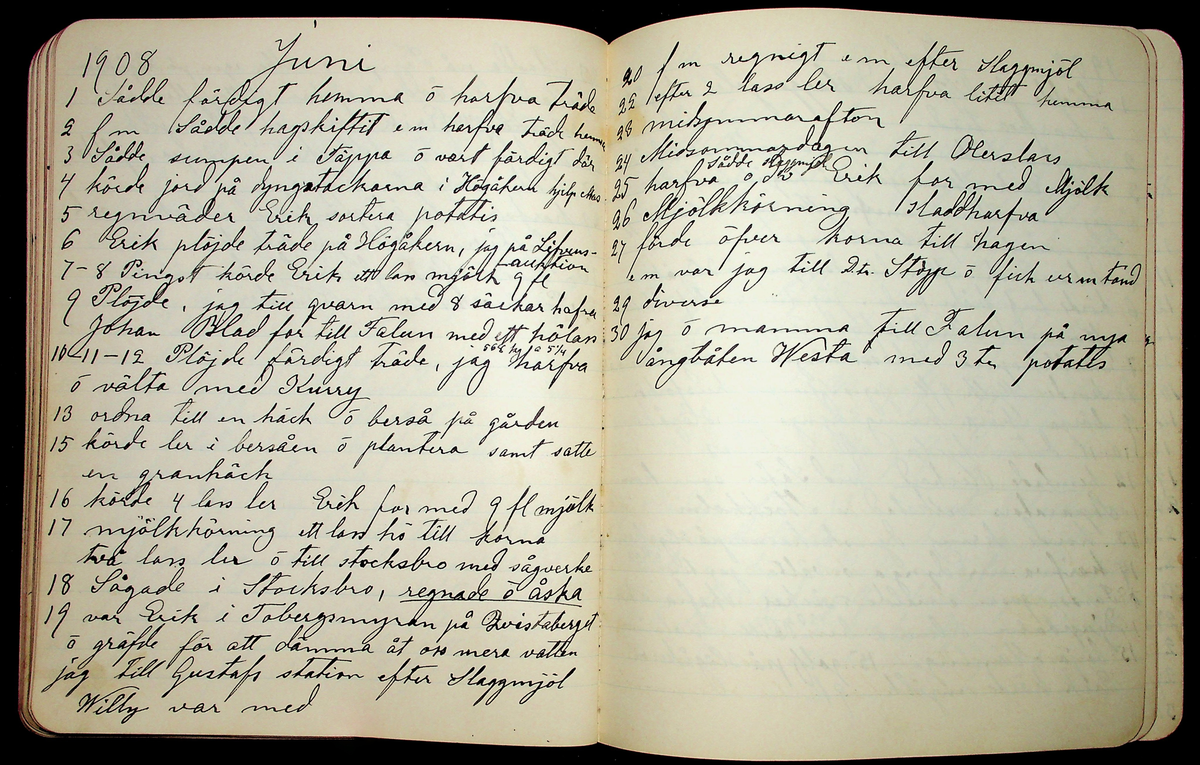 1908 Juni
1 Sådde färdigt hemma ō harfva träde
2 f m Sådde hagskiftit e m harfva träde hemma
3 Sådde sumpen i Täppa ō vart färdigt där
4 körde jord på dyngstackarna i Högåkern hjelp
5 regnväder Erik sortera potatis
6 Erik plöjde träde på Högåkern, jag på
auktion
7-8 Pingst körde Erik ett lass mjölk 9 fl
9 Plöjde, jag till qvarn med 8 säckar hafra
Johan Blad for till Falun med ett hölass
10-11-12 Plöjde färdigt träde, jag harfva
ō välta med Kurry
13 ordna till en häck ō berså på gården
15 körde ler i bersåen ō plantera samt satte
en granhäck
16 körde 4 lass ler Erik for med 9 fl mjölk
17 mjölkkörning ett lass hö till korna
två lass ler ō till stocksbro med sågverke
18 Sågade i Stocksbro, regnade ō åska
19 var Erik i Tobergsmyran på Qvistaberget
ō gräfde för att dämma åt oss mera vatten
jag till Gustafs station efter Slaggmjöl
Willy var med
20 f m regnigt e m efter Slaggmjöl
22 efter 2 lass ler harfva litet hemma
23 midsummarafton
24 Midsommardagen till Olerslars
sådde slaggmjöl
25 harfva ō Erik for med Mjölk
26 Mjölkkörning sladdharfva
27 förde öfver korna till hagen
em var jag till Dr. Stopp ō fick ur en tand
29 diverse
30 jag ō mamma till Falun på nya
ångbåten Westa med 3 tr potatis